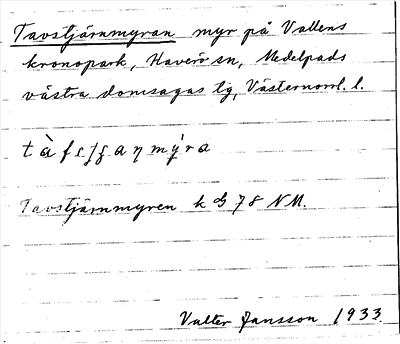 Tavstjärnmyran myr på Vallens
kronopark, Haverö sn, Medelpads
västra domsagas tg, Västernorrl. l.
Tavstjärnmyren k G 78 NM.
Valter Jansson 1933.